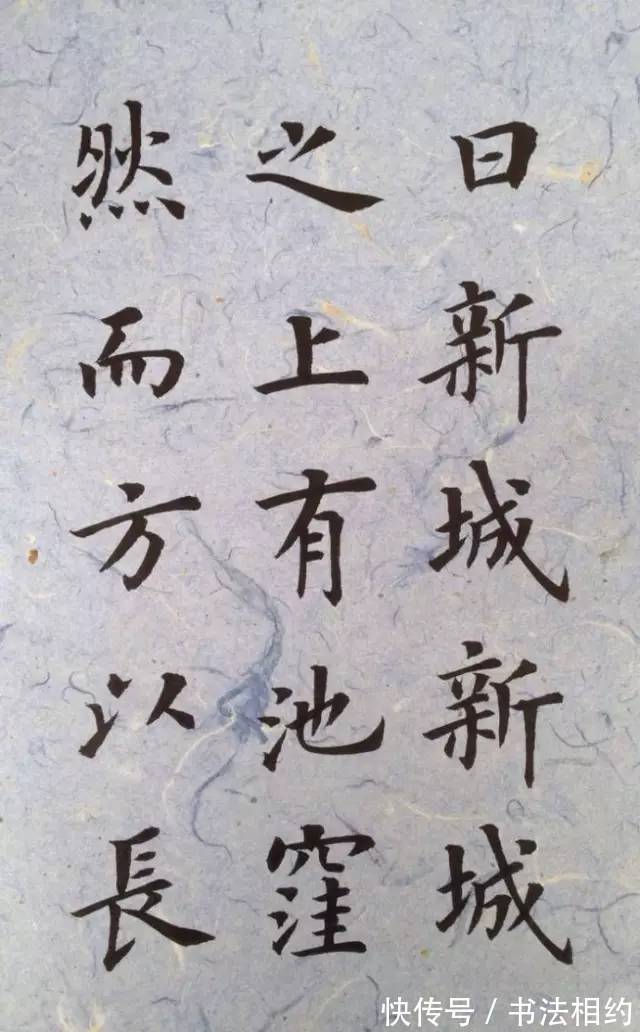 曰新城新城
之上有池窪
然而方以長
快传号/书法相约